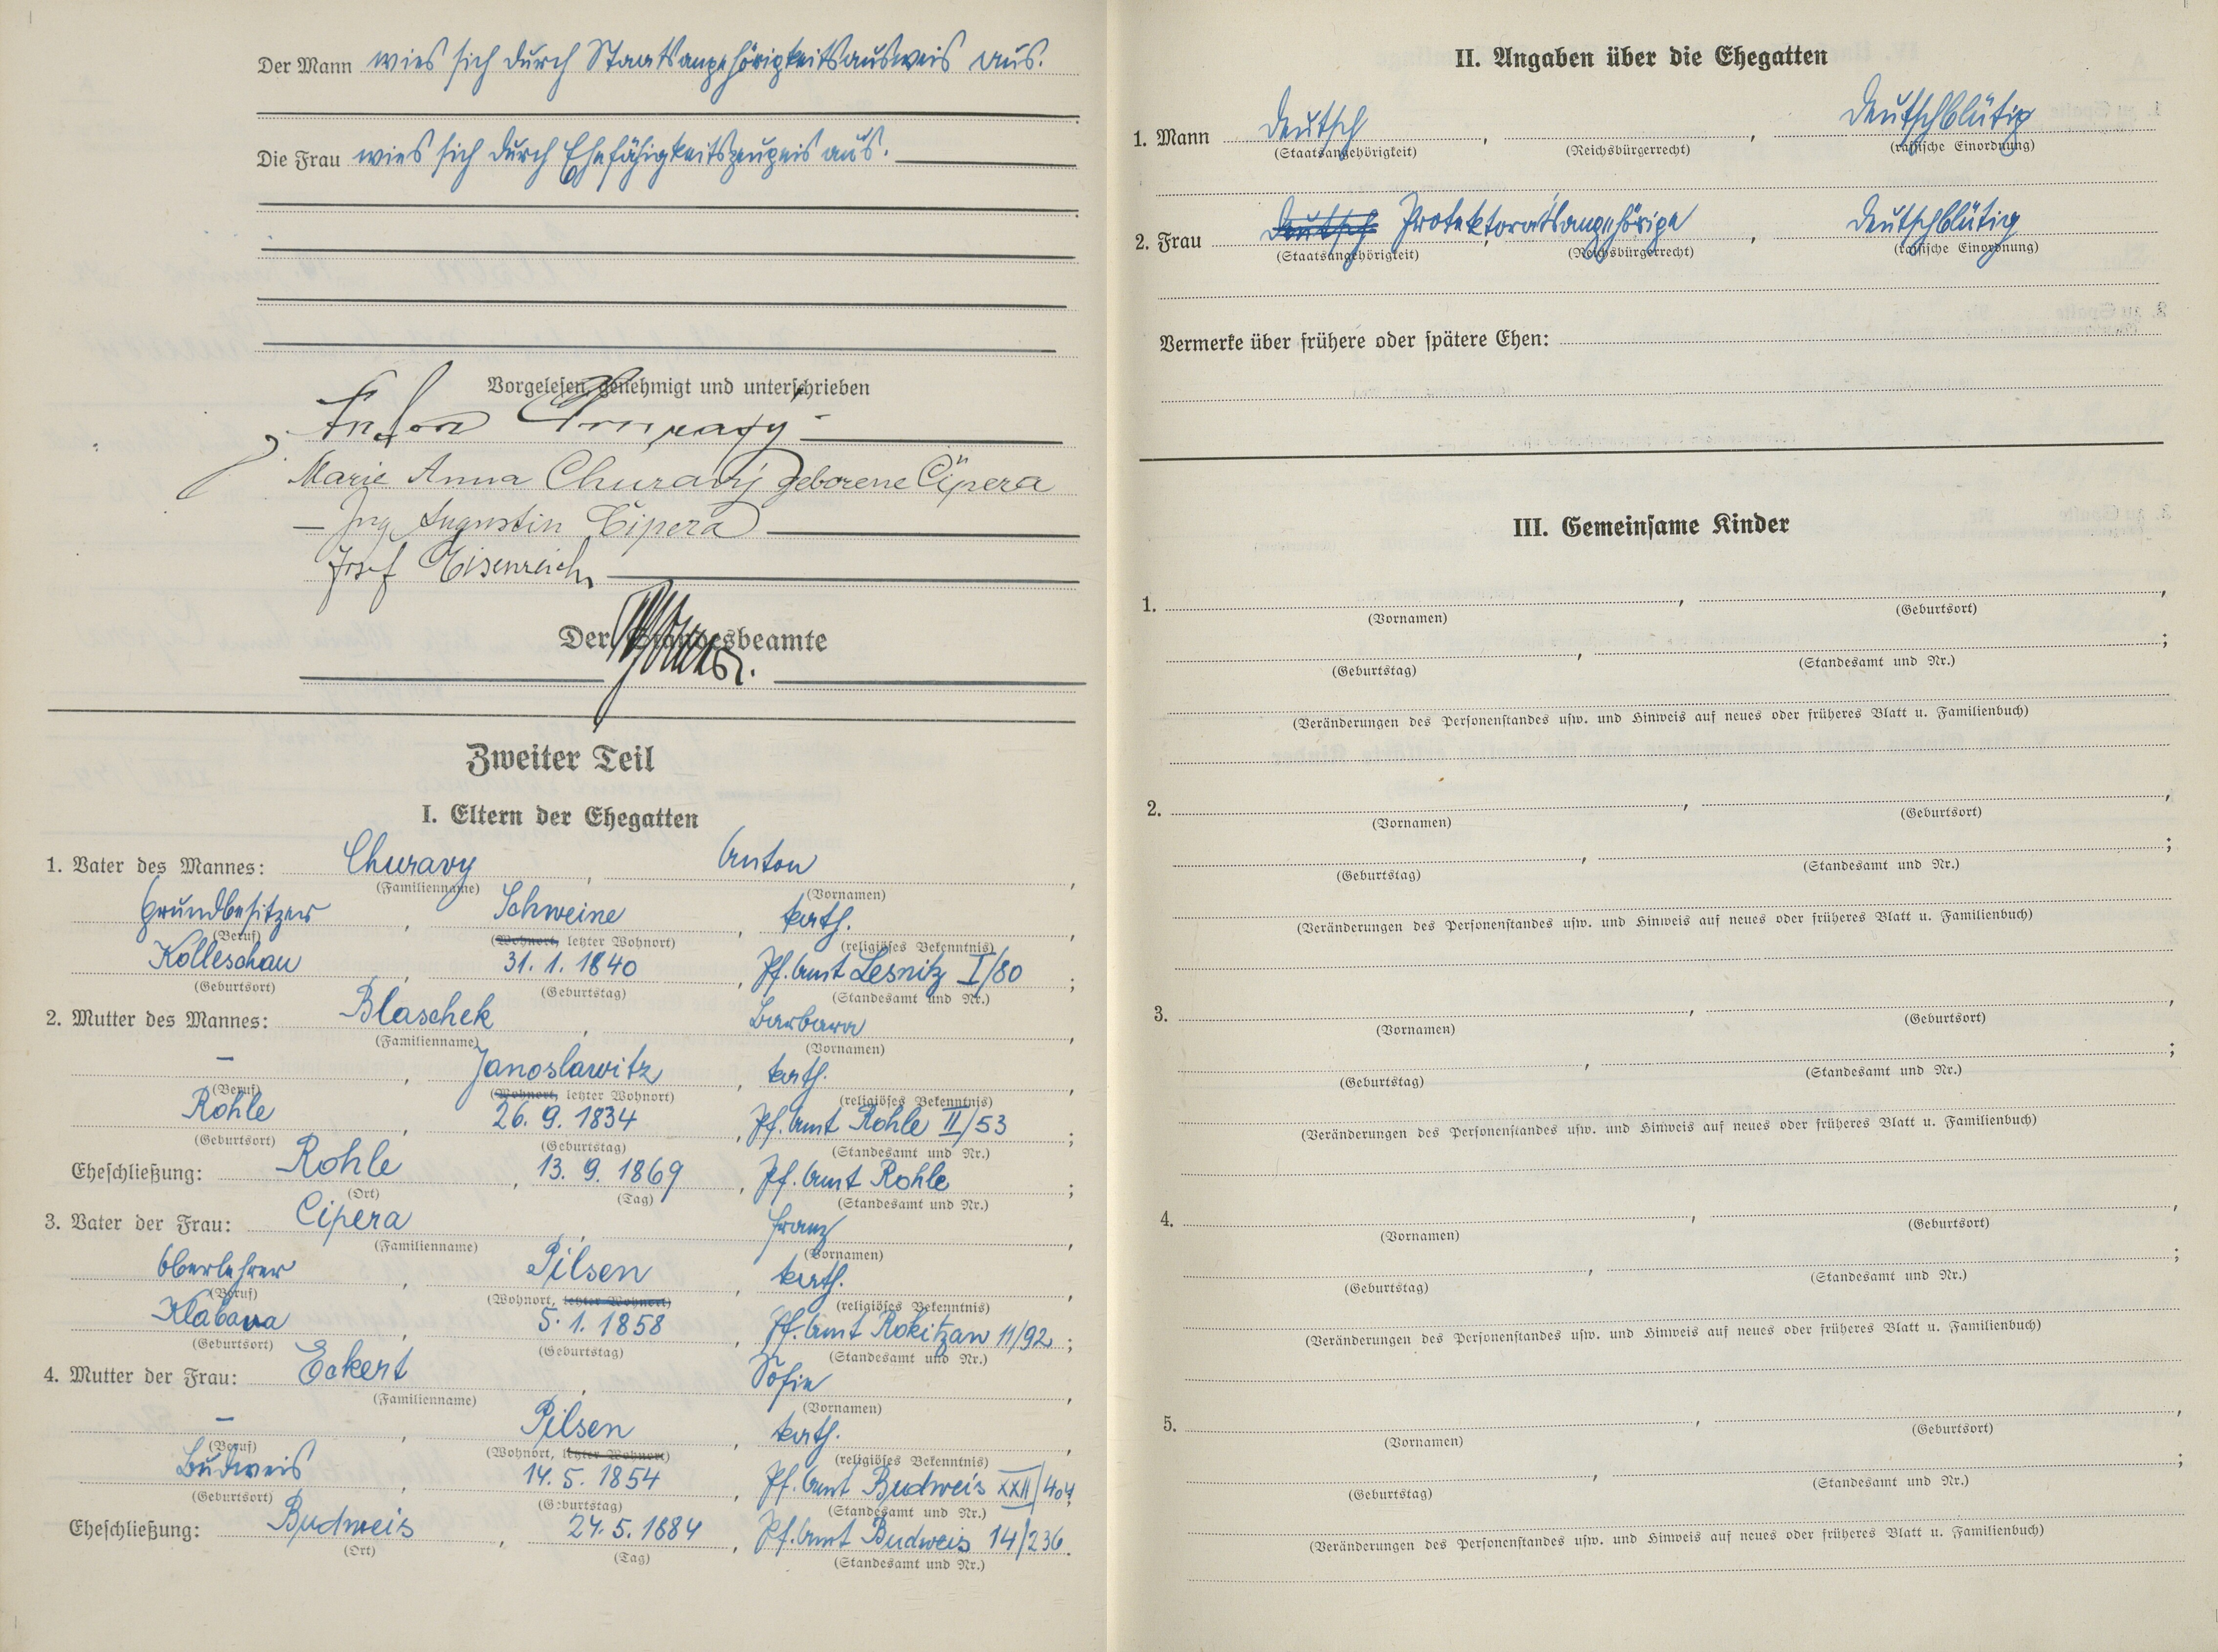 Der Mann wies sich durch Staatsangehörigkeitsausweis aus.
Die Frau wies sich durch Ehefähigkeitszeugnis aus.
Vorgelesen, genehmigt und unterschrieben
Anton Churavý
Marie Anna Churavý geborene Čipera
Ing Augustin Čipera
Josef Eisenreich
Der Standesbeamte
Zweiter Teil
I. Eltern der Ehegatten
1. Vater des Mannes: Churavy, Anton,
(Familienname) (Vornamen)
Grundbesitzer, Schweine, kath.,
(Beruf) (Wohnort, letzter Wohnort) (religiöses Bekenntnis)
Kolleschau, 31. 1. 1840, Pf. Amt Lesnitz I/80;
(Geburtsort) (Geburtstag) (Standesamt und Nr.)
2. Mutter des Mannes: Blaschek, Barbara,
(Familienname) (Vornamen)
–, Janoslawitz, kath.,
(Beruf) (Wohnort, letzter Wohnort) (religiöses Bekenntnis)
Rohle, 26. 9. 1834, Pf. Amt Rohle II/53;
(Geburtsort) (Geburtstag) (Standesamt und Nr.)
Eheschließung: Rohle, 13. 9. 1869, Pf. Amt Rohle;
(Ort) (Tag) (Standesamt und Nr.)
3. Vater der Frau: Cipera, Franz,
(Familienname) (Vornamen)
Oberlehrer, Pilsen, kath.,
(Beruf) (Wohnort, letzter Wohnort) (religiöses Bekenntnis)
Klabava, 5. 1. 1858, Pf. Amt Rokitzan 11/92;
(Geburtsort) (Geburtstag) (Standesamt und Nr.)
4. Mutter der Frau: Eckert, Sofie,
(Familienname) (Vornamen)
–, Pilsen, kath.,
(Beruf) (Wohnort, letzter Wohnort) (religiöses Bekenntnis)
Budweis, 14. 5. 1854, Pf. Amt Budweis XXII/404;
(Geburtsort) (Geburtstag) (Standesamt und Nr.)
Eheschließung: Budweis, 24. 5. 1884, Pf. Amt Budweis 14/236.
(Ort) (Tag) (Standesamt und Nr.)
II. Angaben über die Ehegatten
1. Mann Deutsch, , Deutschblütig
(Staatsangehörigkeit) (Reichsbürgerrecht) (rassische Einordnung)
2. Frau Deutsch Protektoratsangehörige, Deutschblütig
(Staatsangehörigkeit) (Reichsbürgerrecht) (rassische Einordnung)
Vermerke über frühere oder spätere Ehen:
III. Gemeinsame Kinder
1. , ,
(Vornamen) (Geburtsort)
, ;
(Geburtstag) (Standesamt und Nr.)
(Veränderungen des Personenstandes usw. und Hinweis auf neues oder früheres Blatt u. Familienbuch)
2. , ,
(Vornamen) (Geburtsort)
, ;
(Geburtstag) (Standesamt und Nr.)
(Veränderungen des Personenstandes usw. und Hinweis auf neues oder früheres Blatt u. Familienbuch)
3. , ,
(Vornamen) (Geburtsort)
, ;
(Geburtstag) (Standesamt und Nr.)
(Veränderungen des Personenstandes usw. und Hinweis auf neues oder früheres Blatt u. Familienbuch)
4. , ,
(Vornamen) (Geburtsort)
, ;
(Geburtstag) (Standesamt und Nr.)
(Veränderungen des Personenstandes usw. und Hinweis auf neues oder früheres Blatt u. Familienbuch)
5. , ,
(Vornamen) (Geburtsort)
, ;
(Geburtstag) (Standesamt und Nr.)
(Veränderungen des Personenstandes usw. und Hinweis auf neues oder früheres Blatt u. Familienbuch)